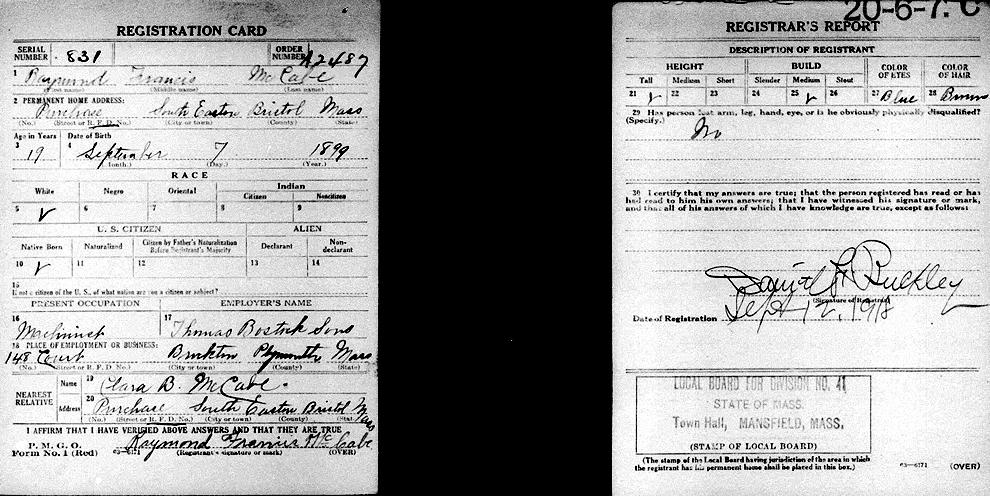 REGISTRATION CARD
SERIAL NUMBER 831 ORDER NUMBER A2487
1 Raymond Francis McCabe
(First name) (Middle name) (Last name)
2 PERMANENT HOME ADDRESS:
Purchase South Easton Bristol Mass
(No.) (Street or R. F. D. No.) (City or town) (County) (State)
Age in Years Date of Birth
3 19 4 September 7 1899
(Month.) (Day.) (Year.)
RACE
White Negro Oriental Indian
Citizen Noncitizen
5 ✓ 6 7 8 9
U. S. CITIZEN ALIEN
Native Born Naturalized Citizen by Father's Naturalization Before Registrant's Majority Declarant Non-declarant
10 ✓ 11 12 13 14
15
If not a citizen of the U. S., of what nation are you a citizen or subject?
PRESENT OCCUPATION EMPLOYER'S NAME
16 Machinist 17 Thomas Bostock Sons
18 PLACE OF EMPLOYMENT OR BUSINESS:
148 Court Brockton Plymouth Mass
(No.) (Street or R. F. D. No.) (City or town) (County) (State)
NEAREST RELATIVE Name 19 Clara B. McCabe.
Address 20 Purchase South Easton Bristol Mass
(No.) (Street or R. F. D. No.) (City or town) (County) (State)
I AFFIRM THAT I HAVE VERIFIED ABOVE ANSWERS AND THAT THEY ARE TRUE
P. M. G. O.
Form No. 1 (Red) 03—6171 Raymond Francis McCabe
(Registrant's signature or mark) (OVER)
20-6-7. C
REGISTRAR'S REPORT
DESCRIPTION OF REGISTRANT
HEIGHT BUILD COLOR OF EYES COLOR OF HAIR
Tall Medium Short Slender Medium Stout
21 ✓ 22 23 24 25 ✓ 26 27 Blue 28 Brown
29 Has person lost arm, leg, hand, eye, or is he obviously physically disqualified?
(Specify.) No
30 I certify that my answers are true; that the person registered has read or has
had read to him his own answers; that I have witnessed his signature or mark,
and that all of his answers of which I have knowledge are true, except as follows:
Daniel F. Buckley
(Signature of Registrar)
Date of Registration Sept 12, 1918
LOCAL BOARD FOR DIVISION NO. 41
STATE OF MASS.
Town Hall, MANSFIELD, MASS.
(STAMP OF LOCAL BOARD)
(The stamp of the Local Board having jurisdiction of the area in which
the registrant has his permanent home shall be placed in this box.) 03—6171 (OVER)